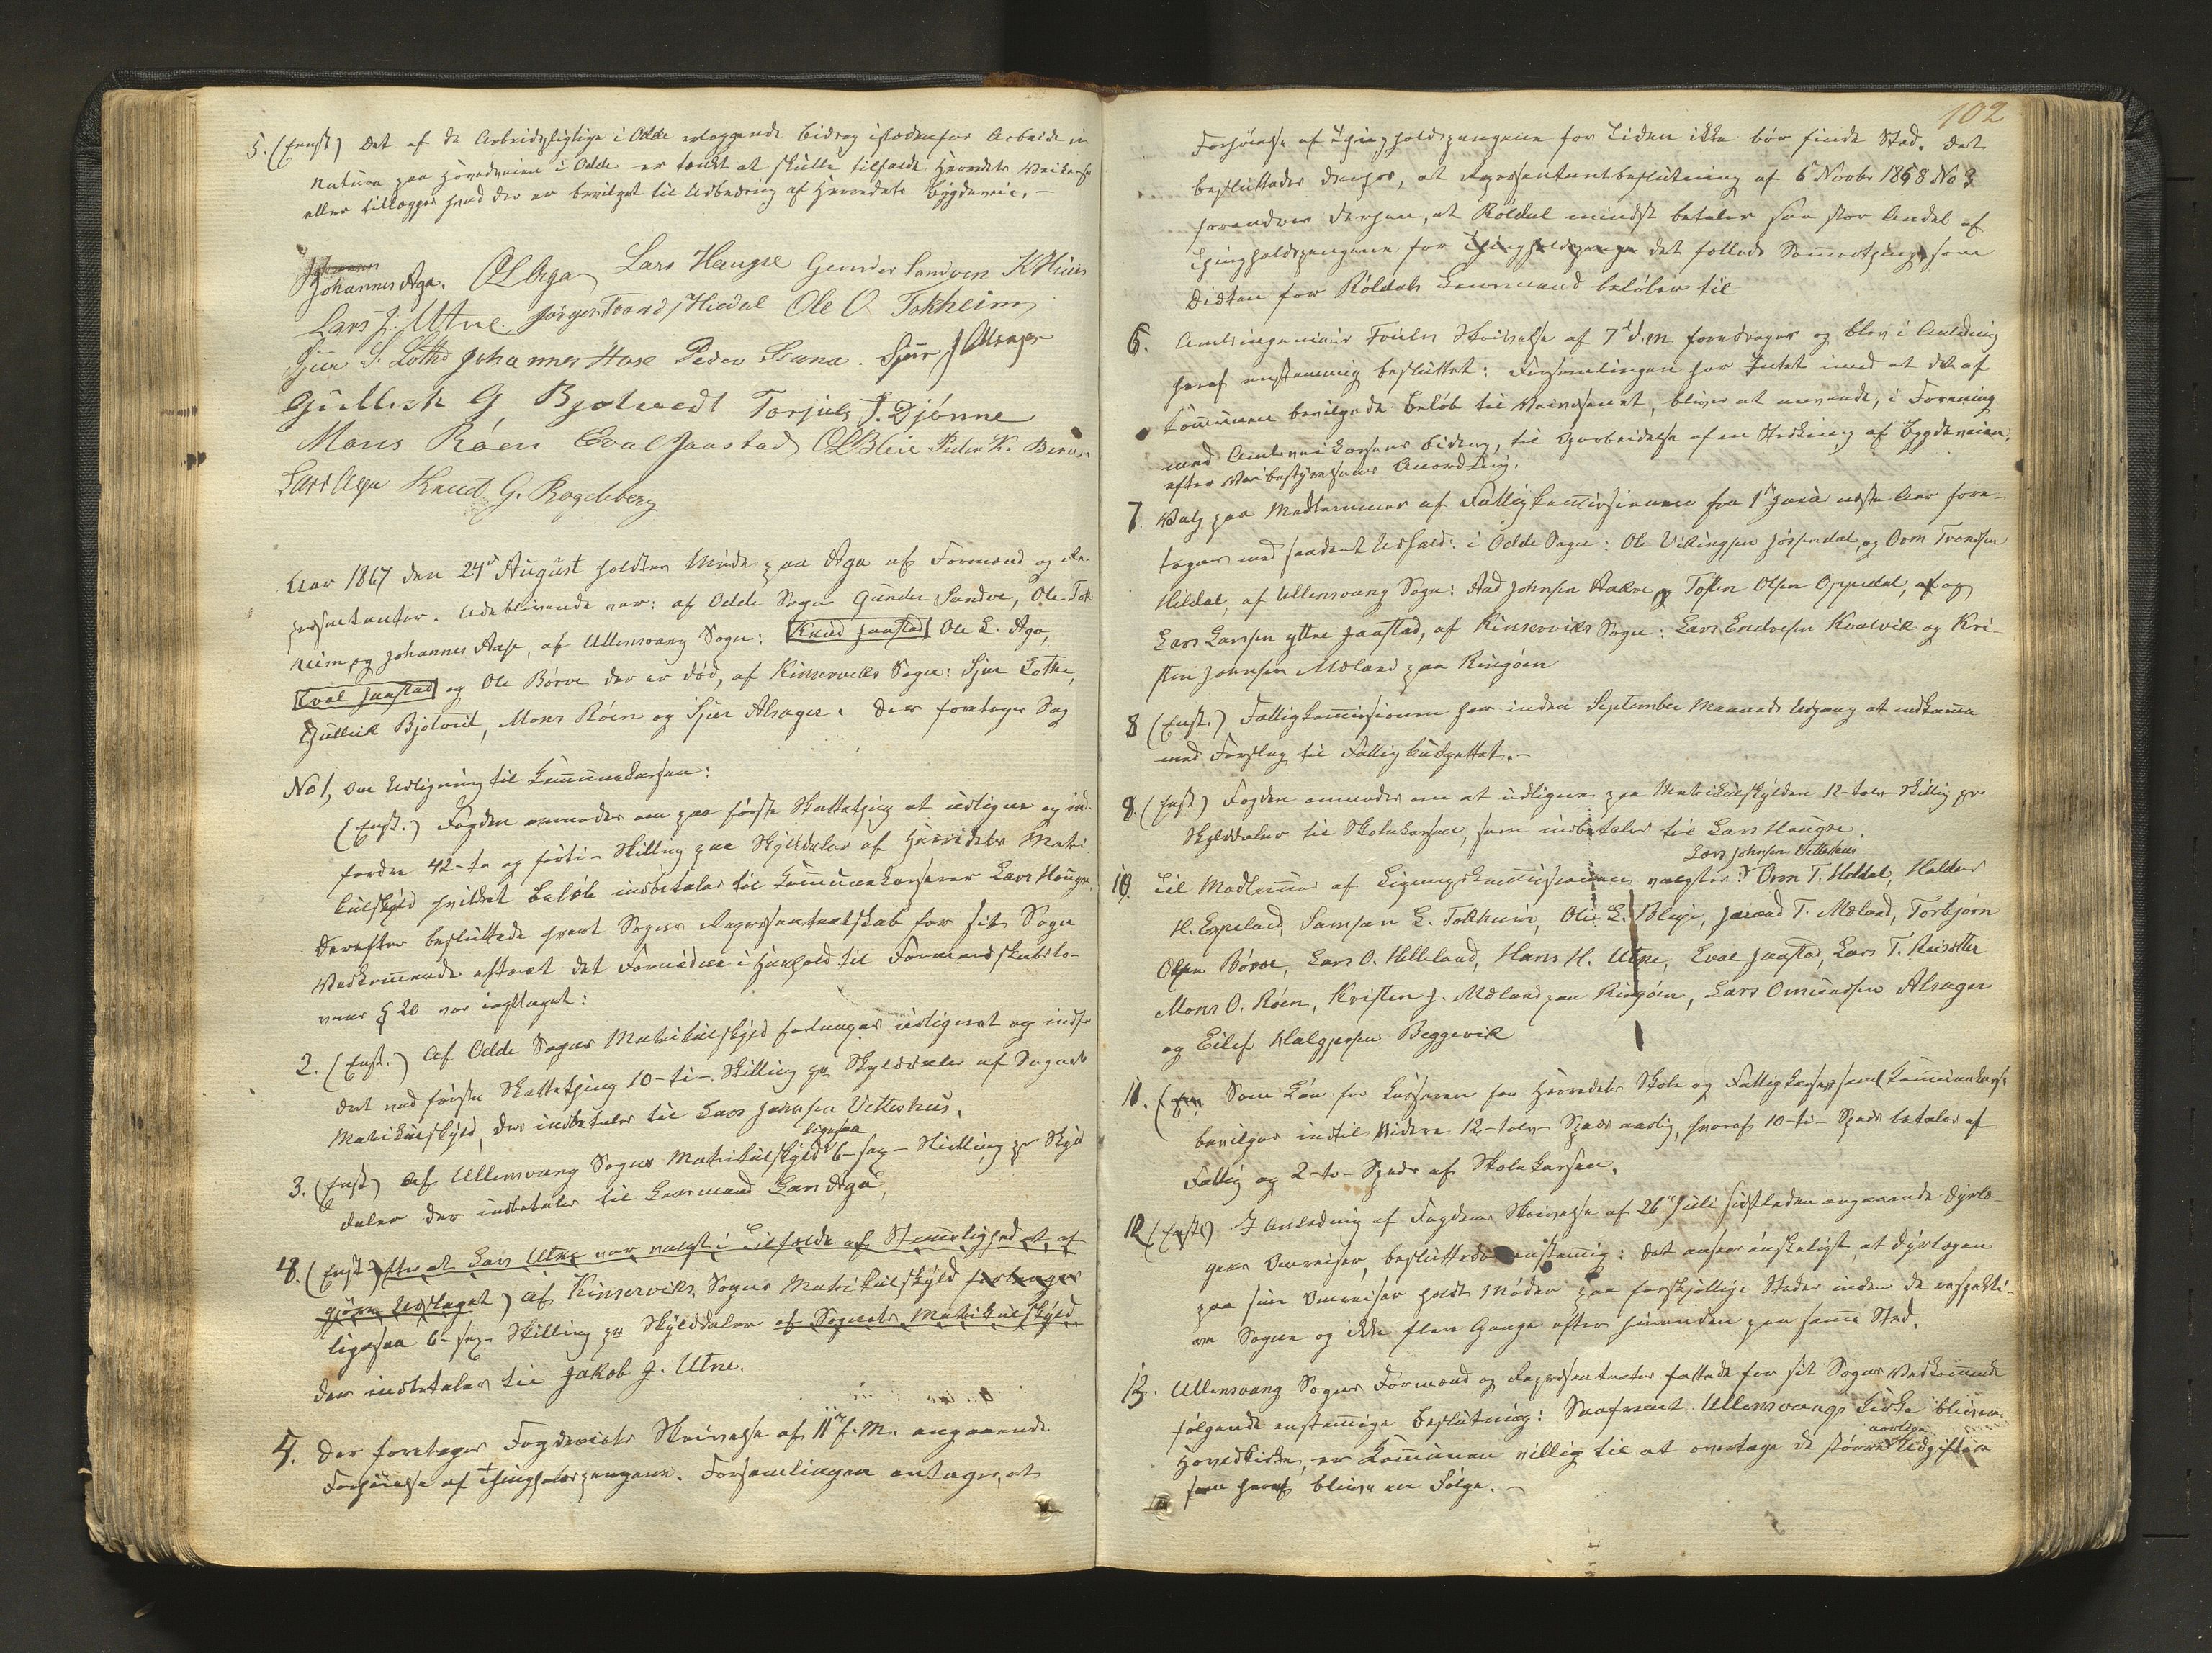 5. (Eenst) Det af de Arbeidspligtige i Odde erlæggende Bidrag istedenfor Arbeide in
natura paa Hovedveien i Odde er tænkt at skulle tilfalde Herredets Veikasse
eller tillægges hvad der er bevilget til Udbedring af Herredets Bygdeveie. –
Johannes Aga. OL Aga Lars Haugse Gunder Sandven K Huus
Lars J. Utne. Jørgen Traard Hildal Ole O. Tokheim
Sjur S. Lothe Johannes Hase Peder Skare. Sjur J Alsager
Gullich G Bjotvedt Torjuls T. Djønne
Mons Røen Eval Jaastad OL Bleie Peder K. Berve
Lars Aga Knud G. Rogdeberg
Aar 1867 den 24de August holdtes Møde paa Aga af Formænd og Re-
præsentanter. Udeblivende var: af Odde Sogn Gunder Sandve, Ole Tok
heim og Johannes Aase, af Ullensvang Sogn: Knud Jaastad Ole L. Aga,
Eval Jaastad og Ole Børve der er død, af Kinserviks Sogn: Sjur Lothe,
Gullik Bjotveit, Mons Røen og Sjur Alsager. Der foretoges Sag
No 1, Om Udligning til Kommunekassen:
(Enst.) Fogden anmodes om paa første Skattething at udligne og ind-
fordre 42-to og førti- Skilling paa Skylddaler af Herredets Matri
kulskyld hvilket Beløb indbetales til Kommunekasserer Lars Haugse.
Derefter besluttede hvert Sogns Repræsentantskab for sit Sogn
Vedkommende efterat det Fornødne i Henhold til Formandskabslo-
vens § 20 var iagttaget:
2. (Enst.) Af Odde Sogns Matrikulskyld forlanges udlignet og indfor
dret ved første Skattething 10-ti- Skilling pr Skylddaler af Sognets
Matrikulskyld, der indbetales til Lars Johnsen Vetterhus.
3. (Enst) Af Ullensvang Sogns Matrikulskyld ligesaa 6-sex- Skilling pr Skyld
daler der indbetales til Lensmand Lars Aga,
4. (Enst) efter at Lars Utne var valgt i Tilfælde af Stemmelighed at af
gjøre Udslaget) af Kinserviks Sogns Matrikulskyld forlanges
ligesaa 6-sex- Skilling pr Skylddaler af Sognets Matrikulskyld
der indbetales til Jakob J. Utne.
5. Der foretoges Fogderiets Skrivelse af 11te f.M. angaaende
Forhøielse af Thingholdspengene. Forsamlingen antager, at
102
Forhøielse af Thingholdspengene for Tiden ikke bør finde Sted. Det
besluttedes derhos, at Repræsentantbeslutning af 6te Novbr 1858 No 3
forandres derhen, at Røldal mindst betaler saa stor Andel af
Thingholdspengene for Thingholdspenge det fælleds Sommerthing, som
Diæten for Røldals Lensmand beløber til
6. Amtsingeniør Frühs Skrivelse af 7de d.M. foredroges og blev i Anledning
heraf enstemmig besluttet: Forsamlingen har Intet imod at det af
Kommunen bevilgede Beløb til Veivæsenet, bliver at anvende, i Forening
med Amtsveikassens Bidrag, til Oparbeidelse af en Strækning af Bygdeveien,
efter Veibestyrelsens Anordning.
7. Valg paa Medlemmer af Fattigkommissionen fra 1ste Januar næste Aar fore-
toges med saadant Udfald: i Odde Sogn: Ole Vikingsen Jøsendal, og Orm Trondsen
Hildal, af Ullensvang Sogn: Aad Johnsen Aakre og Tosten Olsen Oppedal, af og
Lars Larsen yttre Jaastad, af Kinserviks Sogn: Lars Endresen Kvalvik og Kri-
sten Johnsen Mæland paa Ringøen
8 (Enst.) Fattigkommissionen har inden September Maaneds Udgang at indkomme
med Forslag til Fattigbudgettet. –
9. (Enst) Fogden anmodes om at udligne paa Matrikulskylden 12-tolv Skillig pr
Skylddaler til Skolekassen, som indbetales til Lars Haugse.
Lars Johnsen Vetterhus
10. Til Medlemmer af Ligningskommissionen valgtes: Orm T. Hildal, Haldor
H. Espeland, Samson L. Tokheim, Ole L. Bleje, Jarand T. Mæland, Torbjørn
Olsen Børve, Lars O. Helleland, Hans H. Utne, Eval Jaastad, Lars T. Reisæter
Mons O. Røen, Kristen J. Mæland paa Ringøen, Lars Omundsen Alsager
og Eilef Helgjersen Beggevik
11. (Een Som Løn for Kassereren for Herredets Skole og Fattigkasse samt Kommunekasse
bevilges indtil Videre 12-tolv- Spdr aarlig, hvoraf 10-ti- Spdr betales af
Fattig og 2-to- Spdr af Skolekassen.
12 (Enst) I Anledning af Fogdens Skrivelse af 26de Juli sidstleden angaaende Dyrlæ-
gens Omreiser, besluttedes enstemmig: Det ansees ønskeligst, at Dyrlægen
paa sine Omreiser holdt Møder paa forskjellige Steder inden de respekti-
ve Sogne og ikke flere Gange efter hinanden paa samme Sted.
13. Ullensvang Sogns Formænd og Repræsentanter fattede for sit Sogns Vedkommende
følgende enstemmige Beslutning: Saafremt Ullensvangs Kirke bliver
Hovedkirke, er Kommunen villig til at overtage de større aarlige Udgifter
som heraf bliver en Følge. –